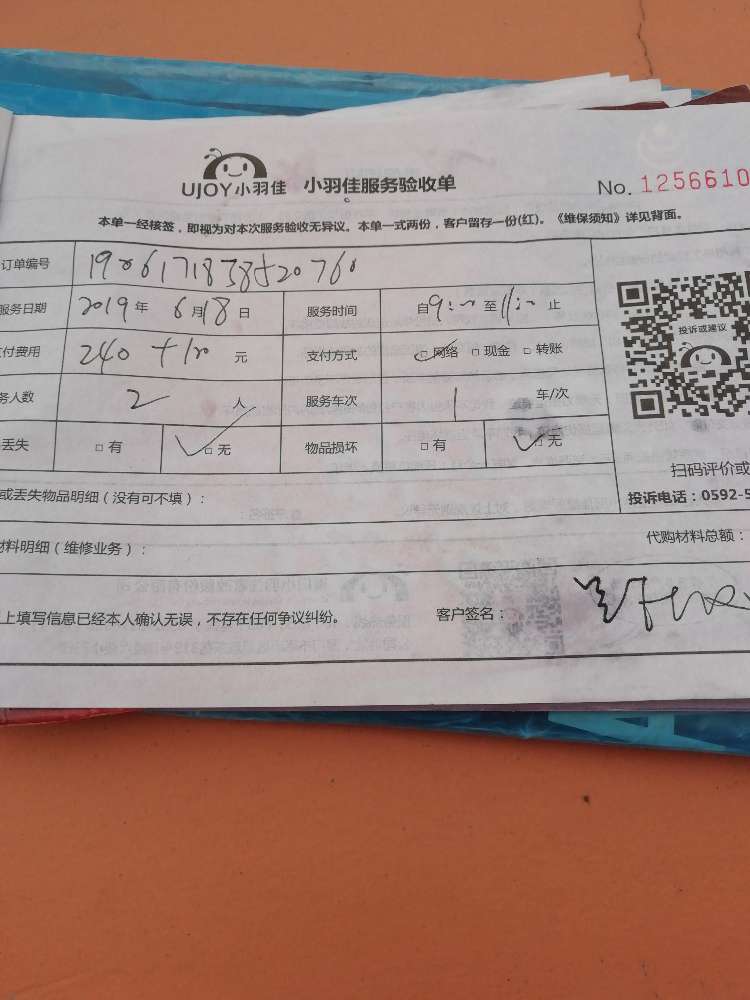 UJOY小羽佳 小羽佳服务验收单 No. 1256610
本单一经核签，即视为对本次服务验收无异议。本单一式两份，客户留存一份(红)。《维保须知》详见背面。
订单编号 1906171838520760
服务日期 2019年 6月18日 服务时间 自9:00至11:00止
付费用 240+100 元 支付方式 网络 现金 转账
务人数 2 人 服务车次 1 车/次
丢失 有 无 物品损坏 有 无
投诉或建议
扫码评价或
或丢失物品明细（没有可不填）：
投诉电话：0592-5
材料明细（维修业务）：
代购材料总额：
上填写信息已经本人确认无误，不存在任何争议纠纷。
客户签名：